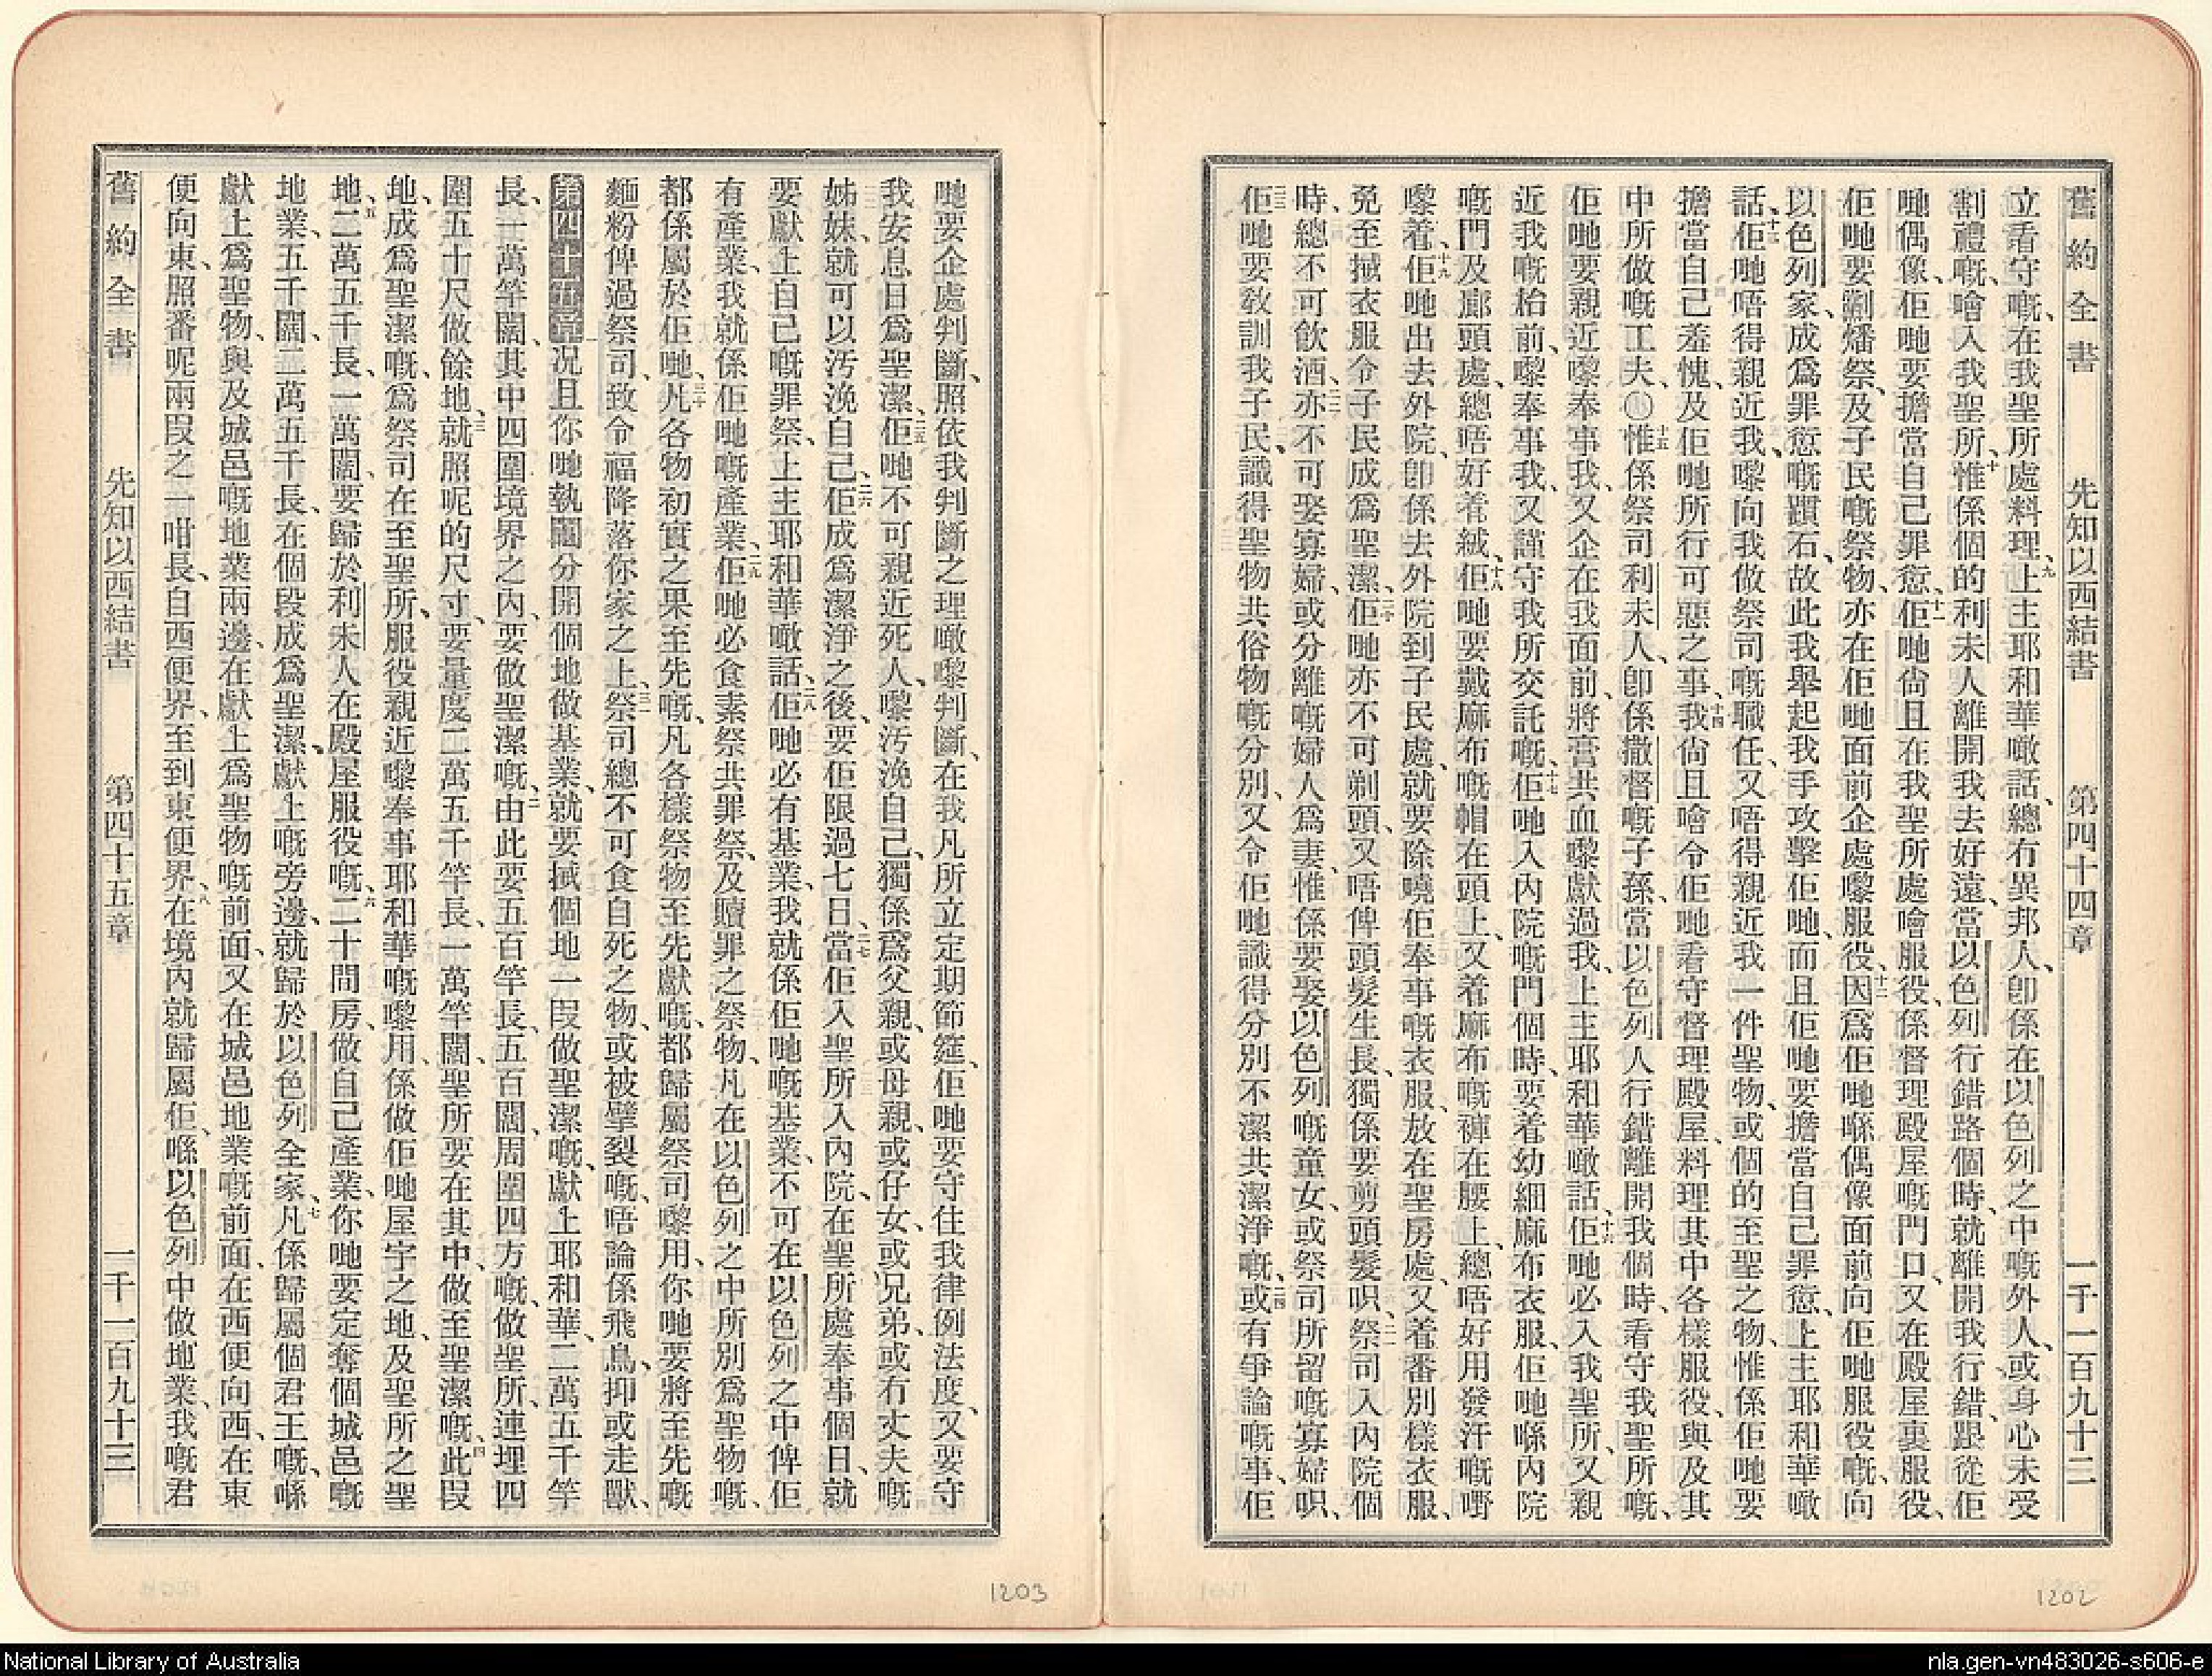 舊約全書 先知以西結書 第四十四章 一千一百九十二
立看守嘅、在我聖所處料理、九上主耶和華噉話、總冇異邦人、卽係在以色列之中嘅外人、或身心未受
割禮嘅、噲入我聖所、十惟係個的利未人離開我去好遠、當以色列行錯路個時、就離開我行錯、跟從佢
哋偶像、佢哋要擔當自己罪愆、十一佢哋尙且在我聖所處噲服役、係督理殿屋嘅門口、又在殿屋裏服役、
佢哋要劏燔祭、及子民嘅祭物、亦在佢哋面前企處嚟服役、十二因爲佢哋喺偶像面前向佢哋服役嘅、向
以色列家、成爲罪愆嘅躓石、故此我舉起我手攻擊佢哋、而且佢哋要擔當自己罪愆、上主耶和華噉
話、十三佢哋唔得親近我、嚟向我做祭司嘅職任、又唔得親近我一件聖物、或個的至聖之物、惟係佢哋要
擔當自己羞愧、及佢哋所行可惡之事、十四我尙且噲令佢哋看守督理殿屋、料理其中各樣服役、與及其
中所做嘅工夫、〇十五惟係祭司利未人、卽係撒督嘅子孫、當以色列人行錯離開我個時、看守我聖所嘅、
佢哋要親近嚟奉事我、又企在我面前、將膏共血嚟獻過我、上主耶和華噉話、十六佢哋必入我聖所、又親
近我嘅枱前、嚟奉事我、又謹守我所交託嘅、十七佢哋入內院嘅門個時、要着幼細麻布衣服、佢哋喺內院
嘅門及廊頭處、總唔好着絨、十八佢哋要戴麻布嘅帽在頭上、又着麻布嘅褲在腰上、總唔好用發汗嘅嘢
嚟着、十九佢哋出去外院、卽係去外院到子民處、就要除曉佢奉事嘅衣服、放在聖房處、又着番別樣衣服、
免至搣衣服令子民成爲聖潔、二十佢哋亦不可剃頭、又唔俾頭髮生長、獨係要剪頭髮呮、二一祭司入內院個
時、總不可飲酒、二二亦不可娶寡婦、或分離嘅婦人爲妻、惟係要娶以色列嘅童女、或祭司所留嘅寡婦呮、
二三佢哋要敎訓我子民、識得聖物共俗物嘅分別、又令佢哋識得分別不潔共潔淨嘅、二四或有爭論嘅事、佢
1202
哋要企處判斷、照依我判斷之理噉嚟判斷、在我凡所立定期節筵、佢哋要守住我律例法度、又要守
我安息日爲聖潔、二五佢哋不可親近死人、嚟汚浼自己、獨係爲父親、或母親、或仔女、或兄弟、或冇丈夫嘅
姊妹、就可以汚浼自己、二六佢成爲潔淨之後、要佢限過七日、二七當佢入聖所入內院、在聖所處奉事個日、就
要獻上自己嘅罪祭、上主耶和華噉話、二八佢哋必有基業、我就係佢哋嘅基業、不可在以色列之中俾佢
有產業、我就係佢哋嘅產業、二九佢哋必食素祭共罪祭、及贖罪之祭物、凡在以色列之中所別爲聖物嘅、
都係屬於佢哋、三十凡各物初實之果至先嘅、凡各樣祭物至先獻嘅、都歸屬祭司嚟用、你哋要將至先嘅
麵粉俾過祭司、致令福降落你家之上、三一祭司總不可食自死之物、或被擘裂嘅、唔論係飛鳥、抑或走獸、
第四十五章一况且你哋執鬮分開個地做基業、就要搣個地一段做聖潔嘅、獻上耶和華、二萬五千竿
長、一萬竿闊、其中四圍境界之內、要做聖潔嘅、二由此要五百竿長、五百闊、周圍四方嘅、做聖所、連埋四
圍五十尺做餘地、三就照呢的尺寸、要量度二萬五千竿長、一萬竿闊、聖所要在其中、做至聖潔嘅、四此段
地、成爲聖潔嘅、爲祭司在至聖所、服役親近嚟奉事耶和華嘅嚟用、係做佢哋屋宇之地、及聖所之聖
地、五二萬五千長、一萬闊、要歸於利未人在殿屋服役嘅、六二十間房、做自己產業、你哋要定奪個城邑嘅
地業、五千闊、二萬五千長、在個段成爲聖潔、獻上嘅旁邊、就歸於以色列全家、七凡係歸屬個君王嘅、喺
獻上爲聖物、與及城邑嘅地業兩邊、在獻上爲聖物嘅前面、又在城邑地業嘅前面、在西便向西、在東
便向東、照番呢兩段之一咁長、自西便界、至到東便界、八在境內就歸屬佢、喺以色列中做地業、我嘅君
舊約全書 先知以西結書 第四十五章 一千一百九十三
1203
National Library of Australia
nla.gen-vn483026-s606-e